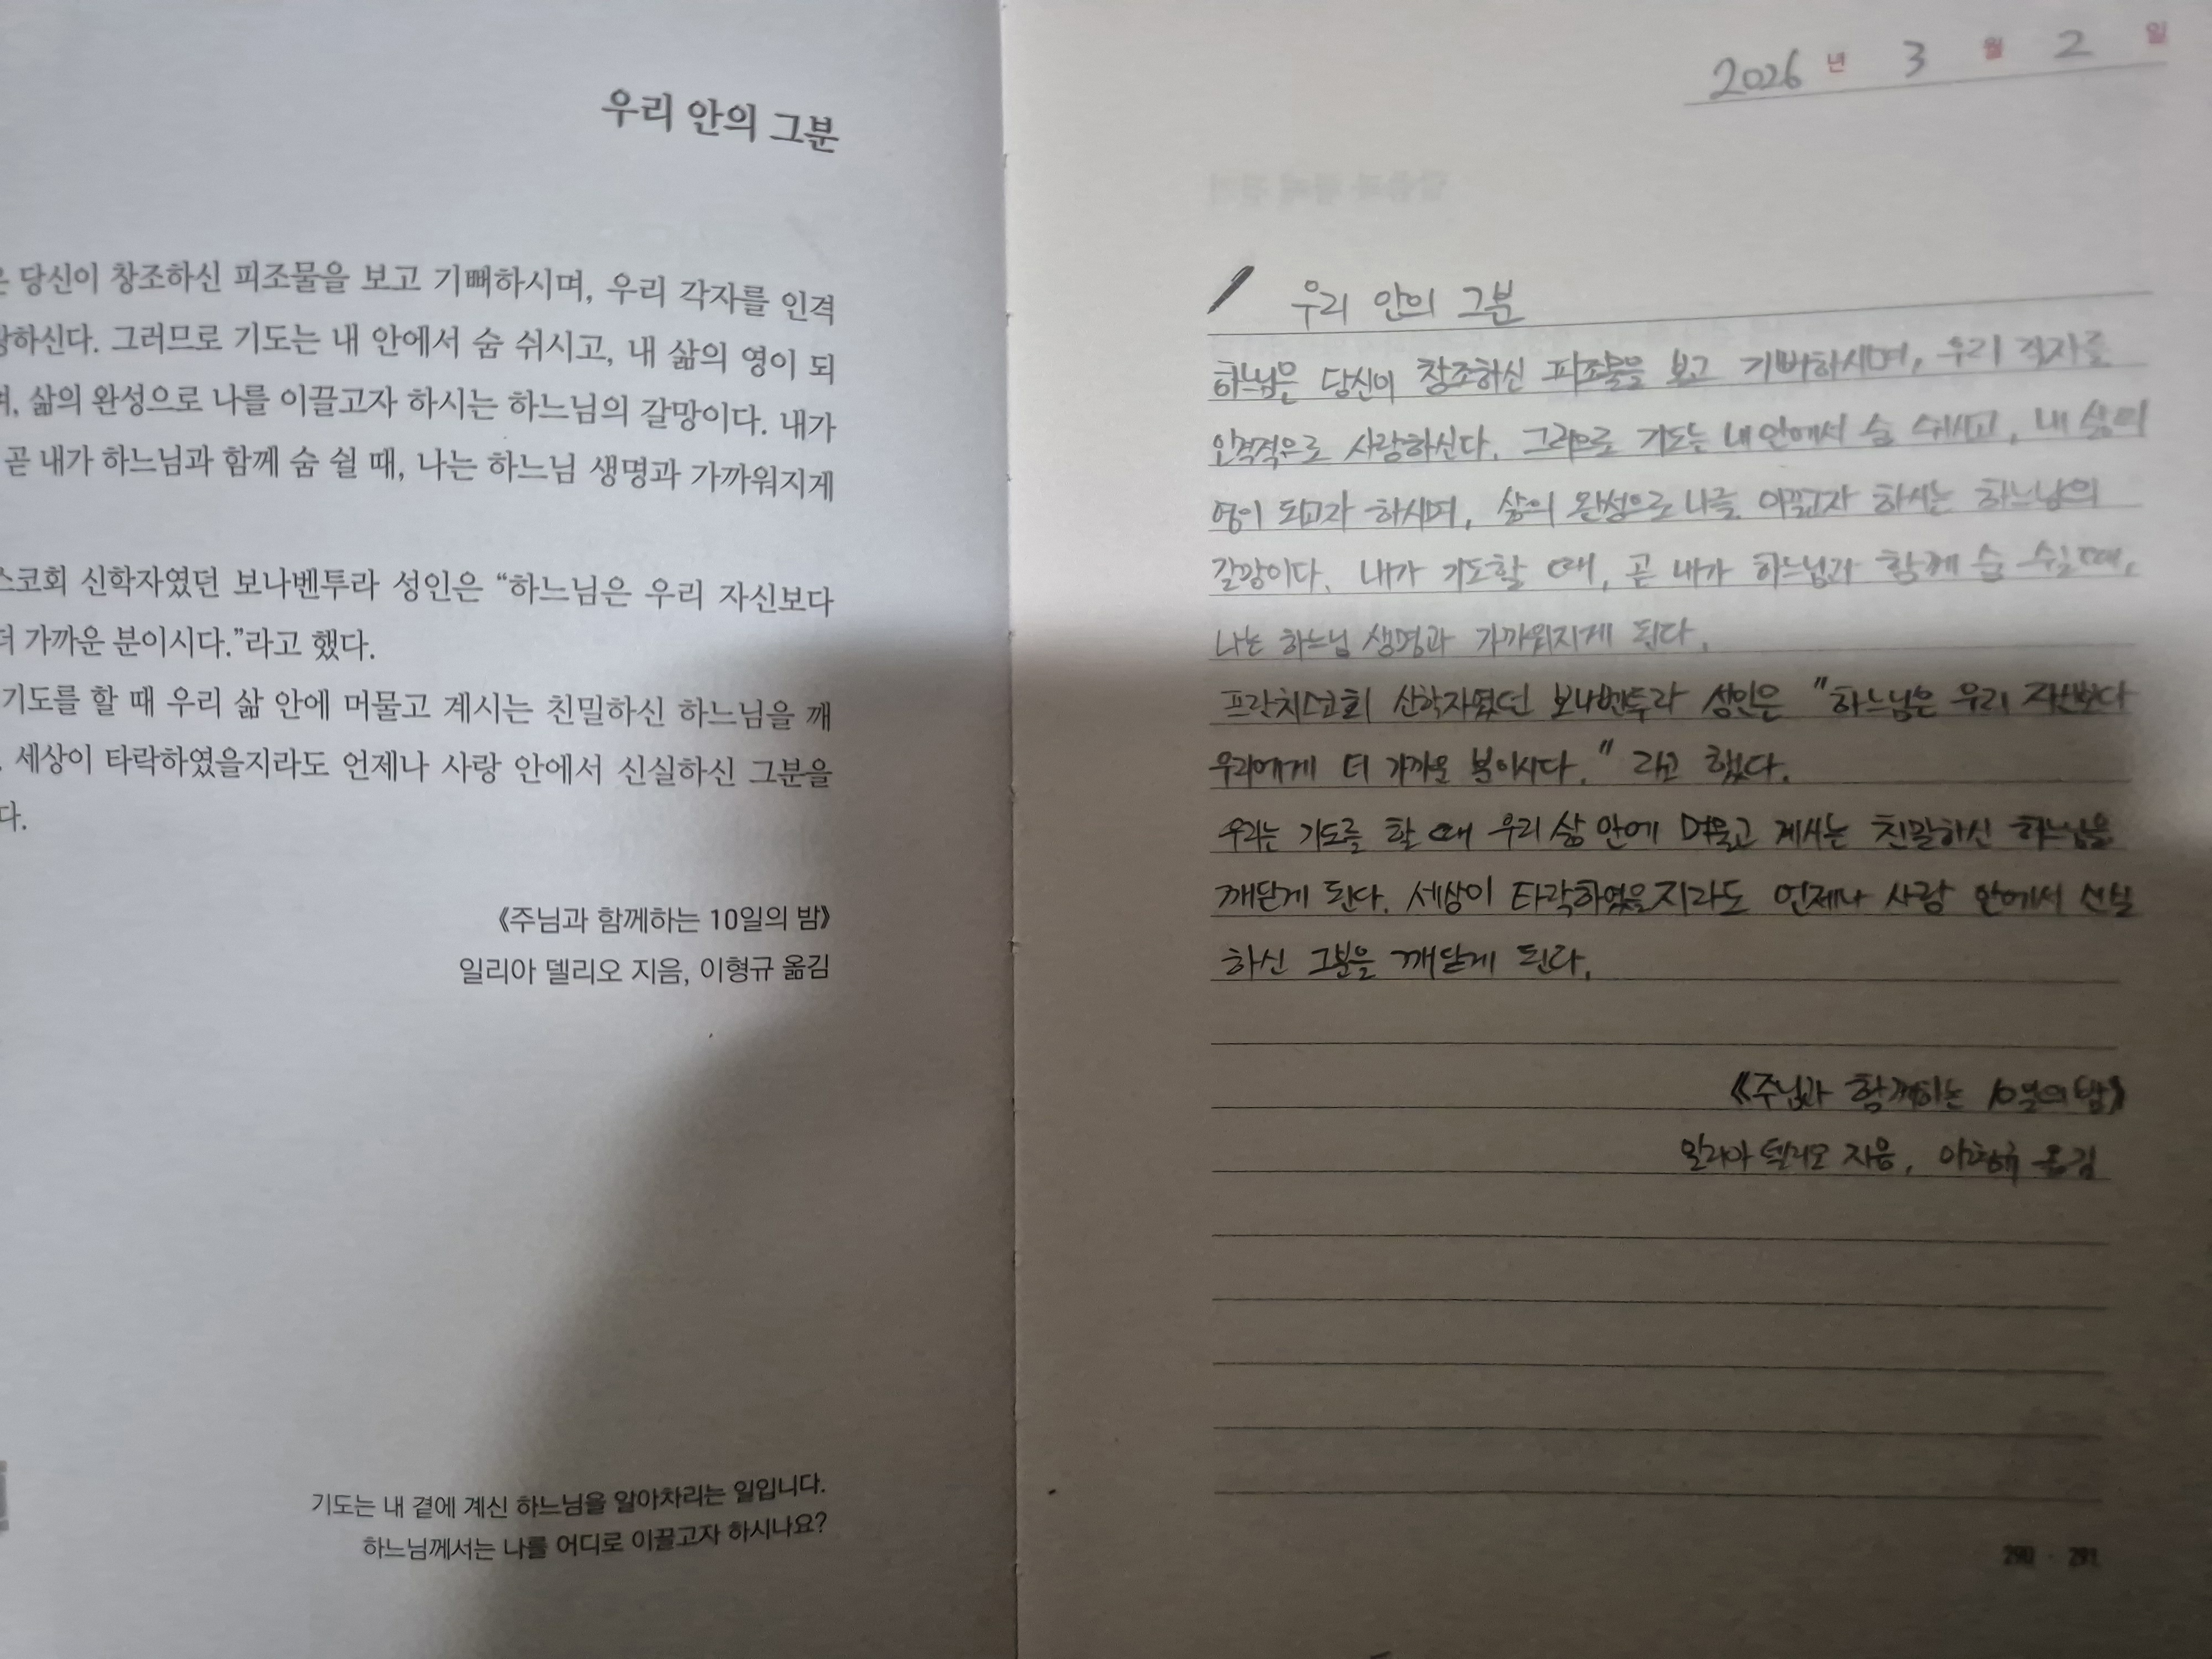 우리 안의 그분
당신이 창조하신 피조물을 보고 기뻐하시며, 우리 각자를 인격
하신다. 그러므로 기도는 내 안에서 숨 쉬시고, 내 삶의 영이 되
, 삶의 완성으로 나를 이끌고자 하시는 하느님의 갈망이다. 내가
곧 내가 하느님과 함께 숨 쉴 때, 나는 하느님 생명과 가까워지게
스코회 신학자였던 보나벤투라 성인은 “하느님은 우리 자신보다
더 가까운 분이시다.”라고 했다.
기도를 할 때 우리 삶 안에 머물고 계시는 친밀하신 하느님을 깨
. 세상이 타락하였을지라도 언제나 사랑 안에서 신실하신 그분을
다.
《주님과 함께하는 10일의 밤》
일리아 델리오 지음, 이형규 옮김
기도는 내 곁에 계신 하느님을 알아차리는 일입니다.
하느님께서는 나를 어디로 이끌고자 하시나요?
2026 년 3 월 2 일
우리 안의 그분
하느님은 당신이 창조하신 피조물을 보고 기뻐하시며, 우리 각자를
인격적으로 사랑하신다. 그러므로 기도는 내 안에서 숨 쉬시고, 내 삶의
영이 되고자 하시며, 삶의 완성으로 나를 이끌고자 하시는 하느님의
갈망이다. 내가 기도할 때, 곧 내가 하느님과 함께 숨 쉴 때,
나는 하느님 생명과 가까워지게 된다.
프란치스코회 신학자였던 보나벤투라 성인은 "하느님은 우리 자신보다
우리에게 더 가까운 분이시다." 라고 했다.
우리는 기도를 할 때 우리 삶 안에 머물고 계시는 친밀하신 하느님을
깨닫게 된다. 세상이 타락하였을지라도 언제나 사랑 안에서 신실
하신 그분을 깨닫게 된다.
《주님과 함께하는 10일의 밤》
일리아 델리오 지음, 이형규 옮김
290 · 291